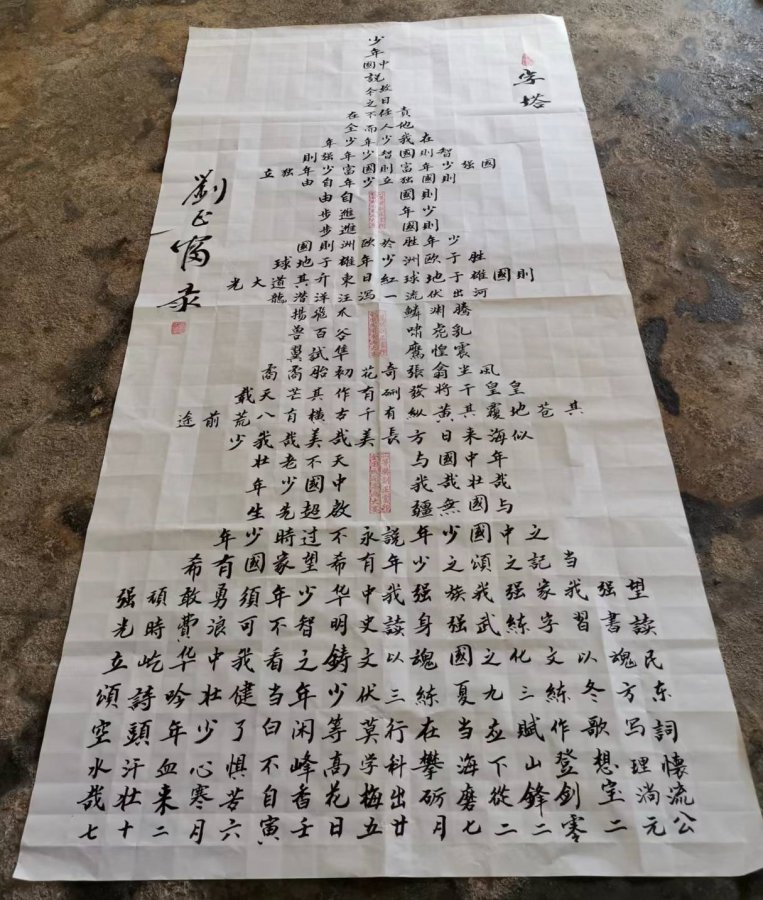 字塔
少
中國年
説
故今
日之
責任不在
地人而全
在我少年
智則國智少年强則
國强少年富則國富少年独立
則國独立少年自由
則國自由
少年進步
則國進步
少年胜於欧洲則國
胜于欧洲少年雄于地球
則國雄于地球紅日東升其道大光
河出伏流一泻汪洋潜龍
腾渊鱗爪飛揚
乳虎嘯谷百兽
震惶鷹隼試翼
風尘翕張奇花初胎矞矞
皇皇干將發硎有作其芒天載
其苍地覆其黄纵有千古横有八荒前途
似海来日方長美哉美哉我少
年中國与天不老壮
哉壮哉我中國少年
与國無疆啟超先生
之中國少年説永不过時少年
当記之頌之少年有希望家國有希
望强我家强我族强我中华少年須勇敢頑强
讀書習字練武强身讀史明智不可浪費時光
民魂以文化之國魂以文鋳之看我中华屹立
东方冬練三九夏練三伏少年当健壮吟詩頌
詞写歌作賦立当在行莫等闲白了少年頭空
懷理想登山下海攀科学高峰不惧心血汗水
流淌宝劍鋒從磨砺出梅花香自苦寒来壮哉
公元二零二二七月廿五日壬寅六月二十七
劉正富录